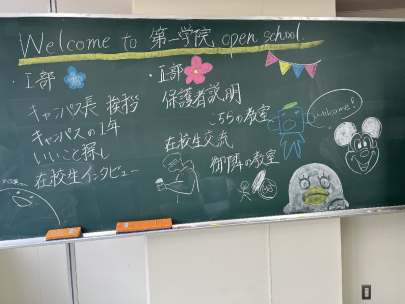 Welcome to 第一学院 open school.
・Ⅰ部
キャンパス長 挨拶
キャンパスの1年
いいこと探し
在校生インタビュー
・Ⅱ部
保護者説明
こちらの教室
在校生交流
御隣の教室
Welcome!